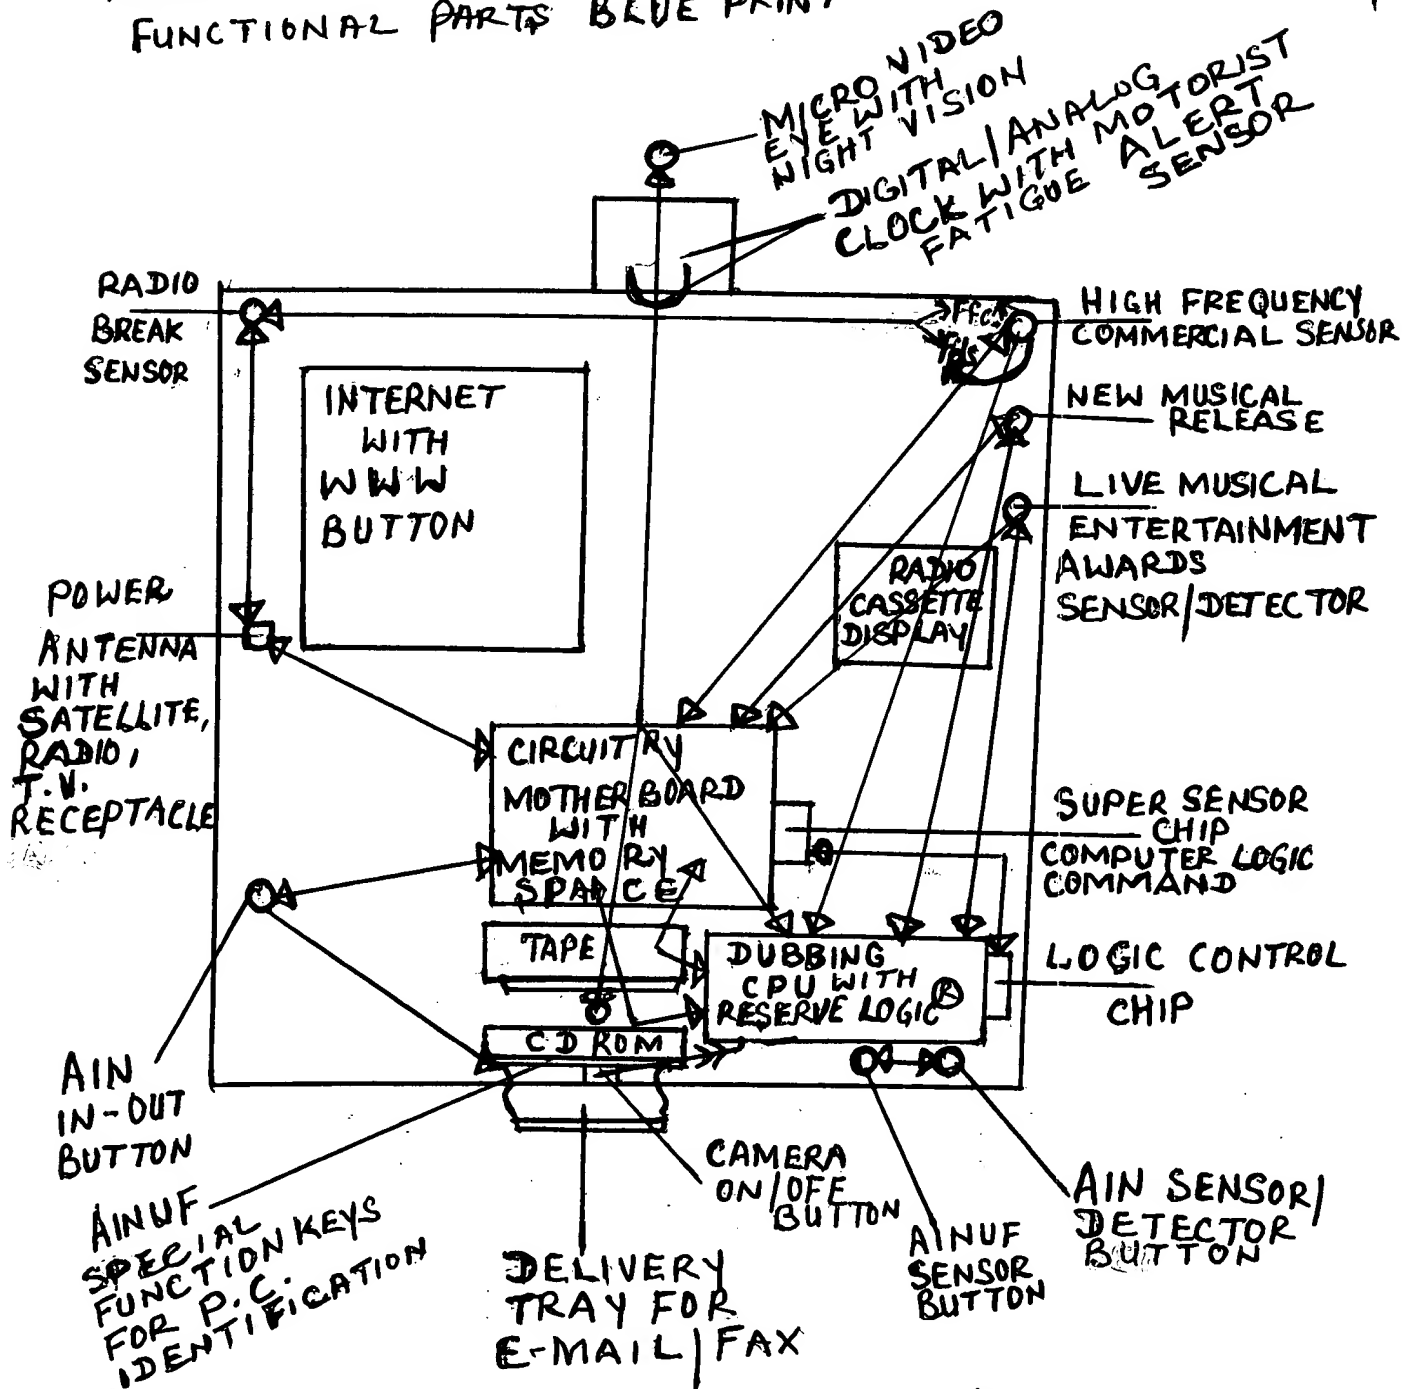 FUNCTIONAL PARTS BLUE PRINT
MICRO VIDEO
EYE WITH
NIGHT VISION
DIGITAL/ANALOG
CLOCK WITH MOTORIST
FATIGUE ALERT
SENSOR
RADIO
BREAK
SENSOR
HIGH FREQUENCY
COMMERCIAL SENSOR
INTERNET
WITH
WWW
BUTTON
NEW MUSICAL
RELEASE
LIVE MUSICAL
ENTERTAINMENT
AWARDS
SENSOR/DETECTOR
RADIO
CASSETTE
DISPLAY
POWER
ANTENNA
WITH
SATELLITE,
RADIO,
T.V.
RECEPTACLE
CIRCUITRY
MOTHERBOARD
WITH
MEMORY
SPACE
SUPER SENSOR
CHIP
COMPUTER LOGIC
COMMAND
TAPE
DUBBING
CPU WITH
RESERVE LOGIC ®
LOGIC CONTROL
CHIP
CD ROM
AIN
IN-OUT
BUTTON
AINUF
SPECIAL
FUNCTION KEYS
FOR P.C.
IDENTIFICATION
CAMERA
ON/OFF
BUTTON
DELIVERY
TRAY FOR
E-MAIL/FAX
AINUF
SENSOR
BUTTON
AIN SENSOR/
DETECTOR
BUTTON